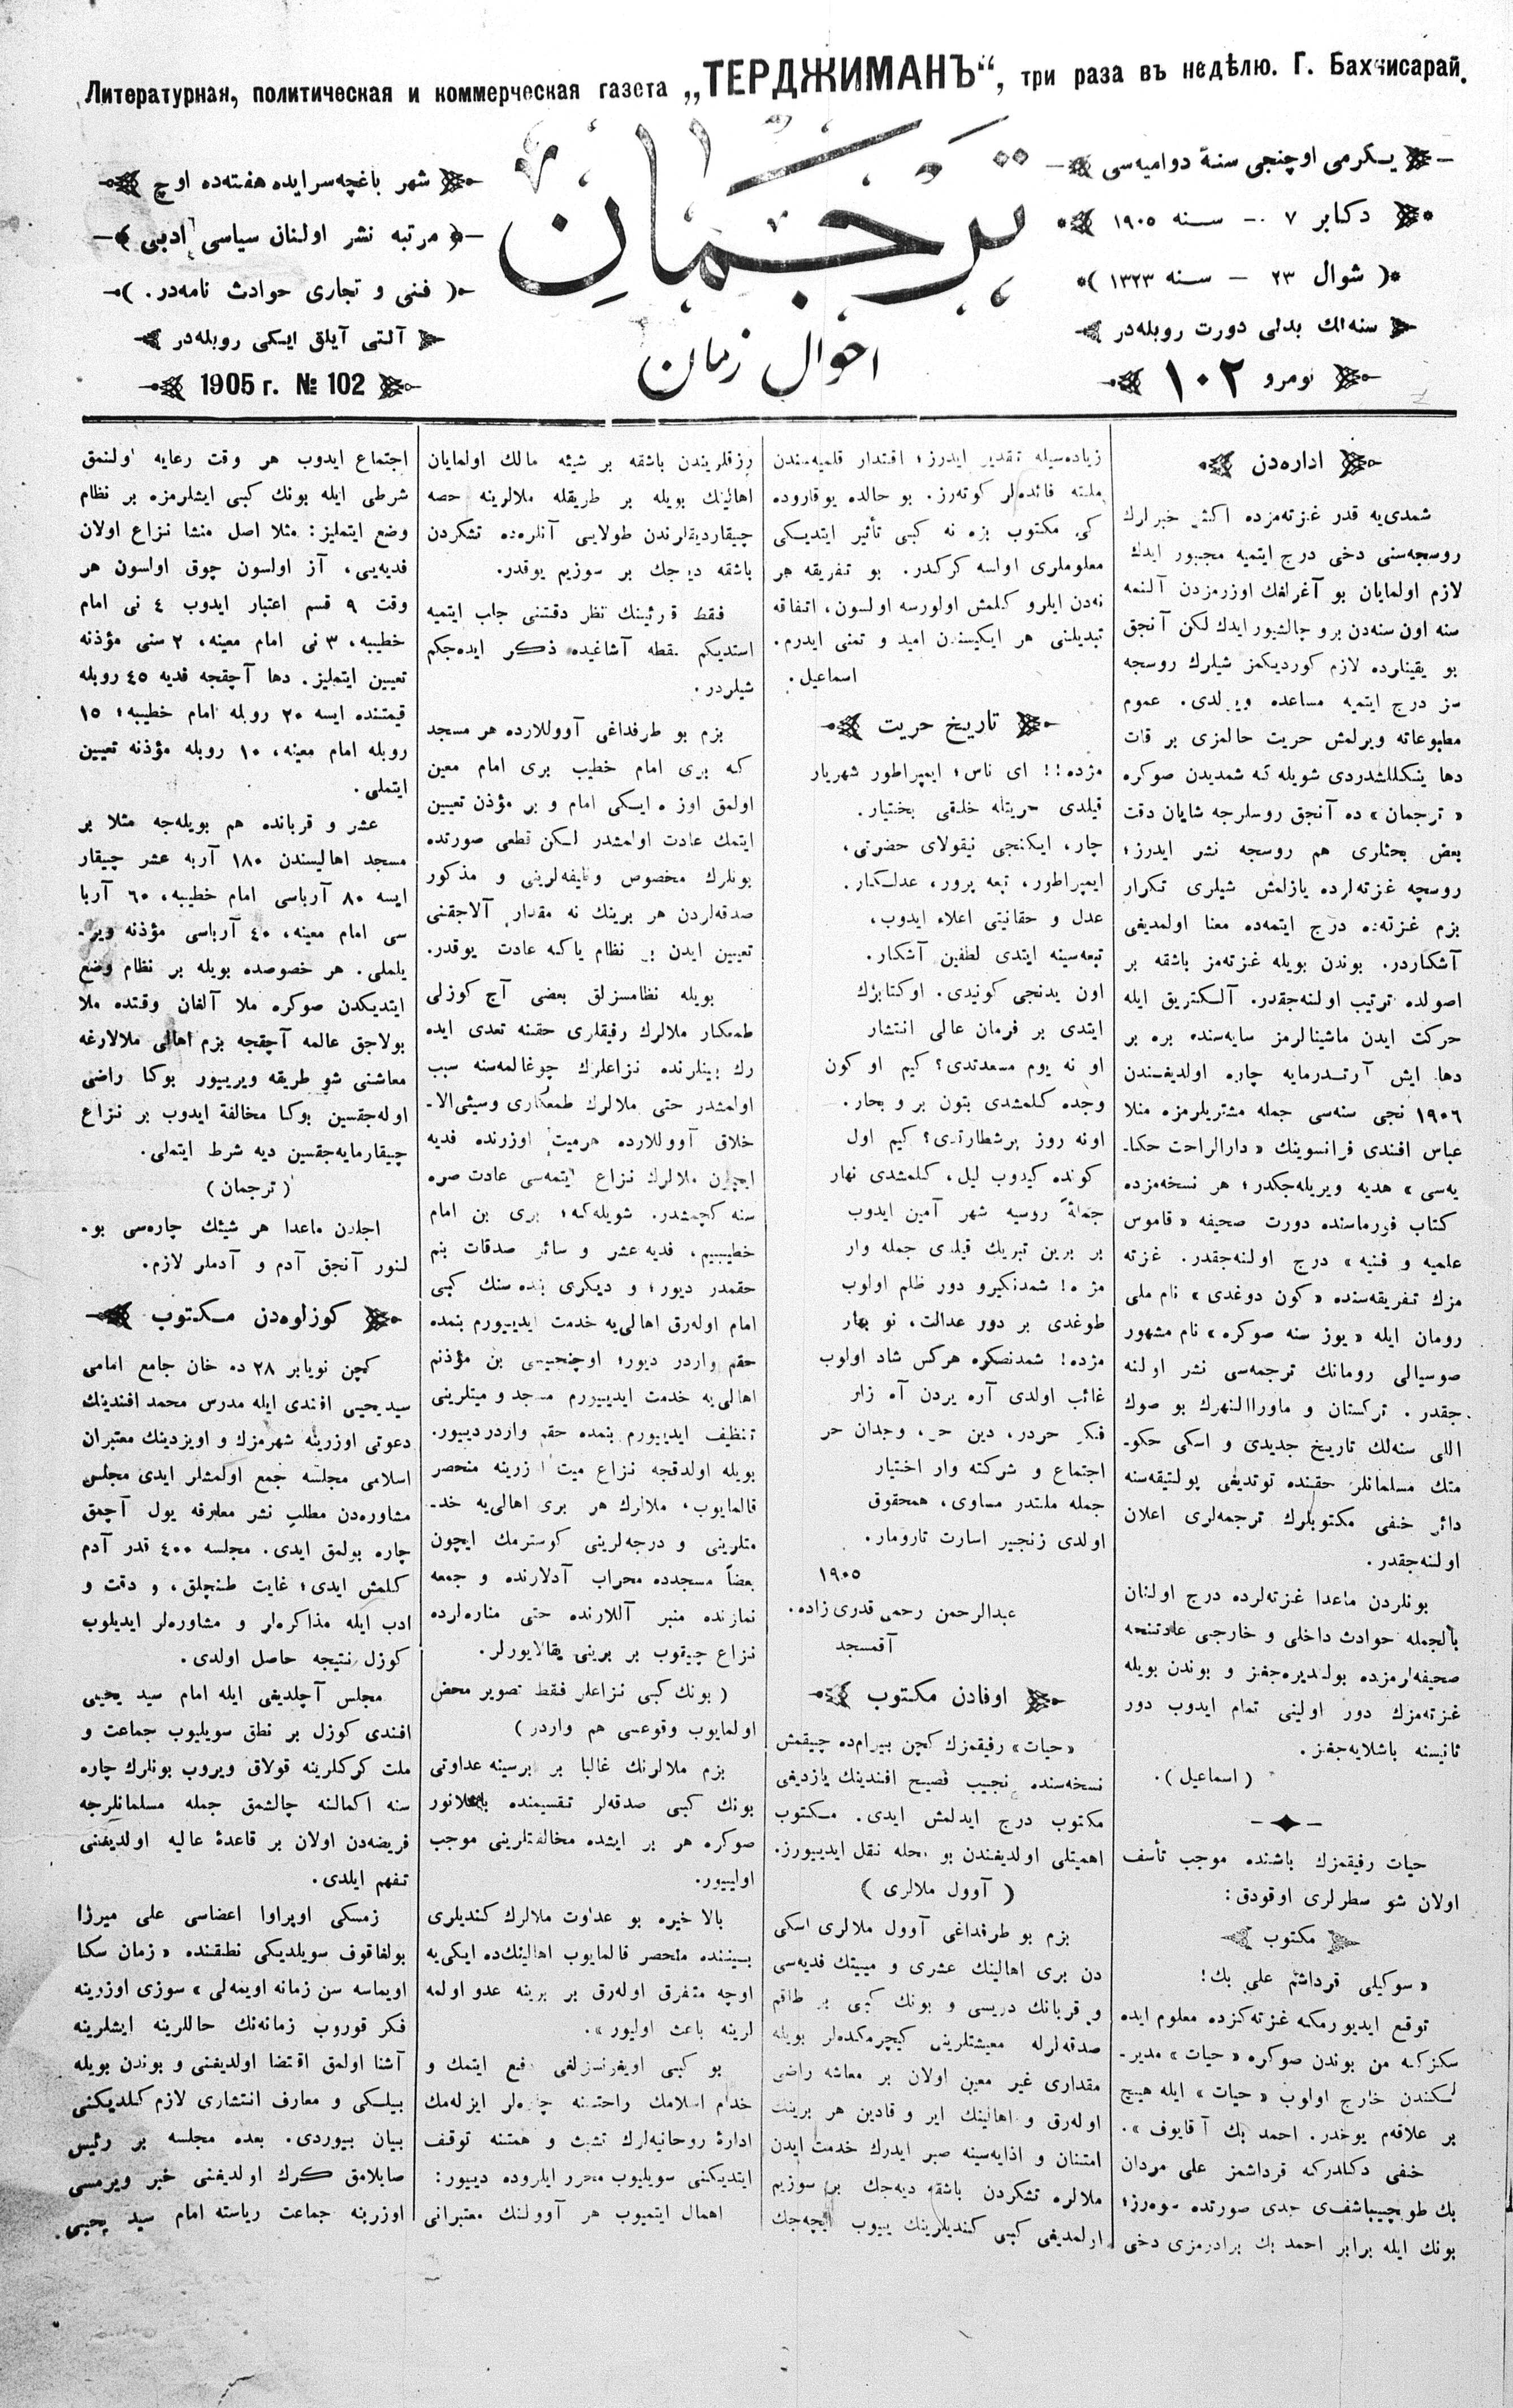 Литературная, политическая и коммерческая газета „ТЕРДЖИМАНЪ“, три раза въ недѣлю. Г. Бахчисарай.
يكرمی اوچنجی سنهٔ دواميه‌سی
دكابر ٧ — سنه ١٩٠٥
( شوال ٢٣ — سنه ١٣٢٣ )
سنه‌لك بدلی دورت روبله‌در
نومرو ١٠٢
ترجمان
احوال زمان
شهر باغچه‌سرايده هفته‌ده اوچ
مرتبه نشر اولنان سياسی ادبی
( فنی و تجاری حوادث نامه‌در. )
آلتی آيلق ايكی روبله‌در
1905 г. № 102
اداره‌دن
شمدی‌يه قدر غزته‌مزده اكثر خبرلرك
روسجه‌سنی دخی درج ايتميه مجبور ايدك
لازم اولمايان بو آغرلغك اوزرمزدن آلنمه
سنه اون سنه‌دن برو چالشيور ايدك لكن آنجق
بو يقينلرده لازم كورديكمز شيلرك روسجه
سز درج ايتميه مساعده ويرلدی. عموم
مطبوعاته ويرلمش حريت حالمزی بر قات
دها ينكللشدردی شويله كه شمديدن صوكره
« ترجمان » ده آنجق روسلرجه شايان دقت
بعض بحثلری هم روسجه نشر ايدرز؛
روسچه غزته‌لرده يازلمش شيلری تكرار
بزم غزته‌ده درج ايتمه‌ده معنا اولمديغی
آشكاردر. بوندن بويله غزته‌مز باشقه بر
اصولده ترتيب اولنه‌جقدر. آلكتريق ايله
حركت ايدن ماشينالرمز سايه‌سنده بره بر
دها ايش آرتدرمايه چاره اولديغندن
١٩٠٦ نجی سنه‌سی جمله مشتريلرمزه منلا
عباس افندی فرانسوينك « دارالراحت حكا-
يه‌سی » هديه ويريله‌جكدر؛ هر نسخه‌مزده
كتاب فورماسنده دورت صحيفه « قاموس
علميه و فنيه » درج اولنه‌جقدر. غزته
مزك تفريقه‌سنده « كون دوغدی » نام ملی
رومان ايله « يوز سنه صوكره » نام مشهور
صوسيالی رومانك ترجمه‌سی نشر اولنه
جقدر. تركستان و ماوراالنهرك بو صوك
اللی سنه‌لك تاريخ جديدی و اسكی حكو-
متك مسلمانلر حقنده توتديغی پولتيقه‌سنه
دائر خفی مكتوبلرك ترجمه‌لری اعلان
اولنه‌جقدر.
بونلردن ماعدا غزته‌لرده درج اولنان
بالجمله حوادث داخلی و خارجی عادتنجه
صحيفه‌لرمزده بولديره‌جغز و بوندن بويله
غزته‌مزك دور اولينی تمام ايدوب دور
ثانيسنه باشلايه‌جغز.
( اسماعيل ).
حيات رفيقمزك باشنده موجب تأسف
اولان شو سطرلری اوقودق:
مكتوب
« سوكيلی قرداشم علی بك!
توقع ايديورمكه غزته‌كزده معلوم ايده
سكزكه من بوندن صوكره « حيات » مدير-
لكندن خارج اولوب « حيات » ايله هيچ
بر علاقه‌م يوخدر. احمد بك آقايوف ».
خفی دكلدركه قرداشمز علی مردان
بك طوچيباشف‌ی جدی صورتده سوه‌رز؛
بونك ايله برابر احمد بك برادرمزی دخی
زياده‌سيله تقدير ايدرز؛ اقتدار قلميه‌سندن
ملته فائده‌لر كوته‌رز. بو حالده يوقاروده
كی مكتوب بزه نه كبی تأثير ايتديكی
معلوملری اولسه كركدر. بو تفريقه هر
نه‌دن ايلرو كلمش اولورسه اولسون، اتفاقه
تبديلنی هر ايكيسندن اميد و تمنی ايدرم.
اسماعيل.
تاريخ حريت
مژده!! ای ناس؛ ايمپراطور شهريار
قيلدی حريتله خلقی بختيار.
چار، ايكنجی نيقولای حضرتی،
ايمپراطور، تبعه پرور، عدلكار.
عدل و حقانيتی اعلاء ايدوب،
تبعه‌سينه ايتدی لطفين آشكار.
اون يدنجی كونيدی. اوكتابرك
ايتدی بر فرمان عالی انتشار
او نه يوم مسعدتدی؟ كيم او كون
وجده كلمشدی بتون بر و بحار.
اونه روز پرشطارتدی؟ كيم اول
كونده كيدوب ليل، كلمشدی نهار
جملهٔ روسيه شهر آمين ايدوب
بر برين تبريك قيلدی جمله وار
مژده! شمدنكيرو دور ظلم اولوب
طوغدی بر دور عدالت، نو بهار
مژده! شمدنصكره هركس شاد اولوب
غائب اولدی آره يردن آه زار
فكر حردر، دين حر، وجدان حر
اجتماع و شركته وار اختيار
جمله ملتدر مساوی، همحقوق
اولدی زنجير اسارت تارومار.
١٩٠٥
عبدالرحمن رحمی قدری زاده.
آقمسجد
اوفادن مكتوب
« حيات » رفيقمزك كچن بيرام‌ده چيقمش
نسخه‌سنده نجيب فصيح افندينك يازديغی
مكتوب درج ايدلمش ايدی. مكتوب
اهميتلی اولديغندن بو محله نقل ايدييورز.
( آوول ملالری )
بزم بو طرفداغی آوول ملالری اسكی
دن بری اهالينك عشری و ميتك فديه‌سی
و قربانك دريسی و بونك كبی بر طاقم
صدقه‌لرله معيشتلرينی كيچرمكده‌لر بويله
مقداری غير معين اولان بر معاشه راضی
اوله‌رق و اهالينك اير و قادين هر برينك
امتنان و اذايه‌سينه صبر ايدرك خدمت ايدن
ملالره تشكردن باشقه ديه‌جك بر سوزيم
اولمديغی كبی كنديلرينك ييوب ايچه‌جك
رزقلريندن باشقه بر شيئه مالك اولمايان
اهالينك بويله بر طريقله ملالرينه حصه
چيقارديقلرندن طولايی آنلره‌ده تشكردن
باشقه ديه‌جك بر سوزيم يوقدر.
فقط قارئينك نظر دقتنی جلب ايتميه
استديكم نقطه آشاغيده ذكر ايده‌جكم
شيلردر.
بزم بو طرفداغی آووللارده هر مسجد
كه بری امام خطيب بری امام معين
اولمق اوزره ايكی امام و بر مؤذن تعيين
ايتمك عادت اولمشدر لكن قطعی صورتده
بونلرك مخصوص وظيفه‌لرينی و مذكور
صدقه‌لردن هر برينك نه مقدار آلاجقنی
تعيين ايدن بر نظام ياكه عادت يوقدر.
بويله نظامسزلق بعضی آچ كوزلی
طمعكار ملالرك رفيقلری حقنه تعدی ايده
رك بينلرنده نزاعلرك چوغالمه‌سنه سبب
اولمشدر حتی ملالرك طمعكاری وسيئی‌الا-
خلاق آووللارده هرميت اوزرنده فديه
ايچون ملالرك نزاع ايتمه‌سی عادت صره
سنه كچمشدر. شويله‌كه؛ بری بن امام
خطيبيم، فديه عشر و سائر صدقات بنم
حقمدر ديور؛ و ديكری بنده سنك كبی
امام اوله‌رق اهالی‌يه خدمت ايدييورم بنمده
حقم واردر ديور؛ اوچنجيسی بن مؤذنم
اهالی‌يه خدمت ايدييورم مسجد و ميتلرينی
تنظيف ايدييورم بنمده حقم واردر دييور.
بويله اولدقجه نزاع ميت اوزرينه منحصر
قالمايوب، ملالرك هر بری اهالی‌يه خد-
متلرينی و درجه‌لرينی كوسترمك ايچون
بعضاً مسجدده محراب آدلارنده و جمعه
نمازنده منبر آللارنده حتی مناره‌لرده
نزاع چيقوب بر برينی يقالايورلر.
( بونك كبی نزاعلر فقط تصوير محض
اولمايوب وقوعسی هم واردر )
بزم ملالرنك غالبا بر برسينه عداوتی
بونك كبی صدقه‌لر تقسيمنده باشلانور
صوكره هر بر ايشده مخالفتلرينی موجب
اولييور.
بالا خيره بو عداوت ملالرك كنديلری
بيننده منحصر قالمايوب اهالينك‌ده ايكی‌يه
اوچه متفرق اوله‌رق بر برينه عدو اولمه
لرينه باعث اوليور ».
بو كبی اويغرنسزلغی دفع ايتمك و
خدام اسلامك راحتسنه چاره‌لر ايزله‌مك
ادارهٔ روحانيه‌لرك تشبث و همتنه توقف
ايتديكنی سويليوب محرر ايلروده دييور:
اهمال ايتميوب هر آوولنك معتبرانی
اجتماع ايدوب هر وقت رعايه اولنمق
شرطی ايله بونك كبی ايشلرمزه بر نظام
وضع ايتمليز: مثلا اصل منشا نزاع اولان
فديه‌يی، آز اولسون چوق اولسون هر
وقت ٩ قسم اعتبار ايدوب ٤ نی امام
خطيبه، ٣ نی امام معينه، ٢ سنی مؤذنه
تعيين ايتمليز. دها آچقجه فديه ٤٥ روبله
قيمتنده ايسه ٢٠ روبله امام خطيبه؛ ١٥
روبله امام معينه، ١٠ روبله مؤذنه تعيين
ايتملی.
عشر و قربانده هم بويله‌جه مثلا بر
مسجد اهاليسندن ١٨٠ آربه عشر چيقار
ايسه ٨٠ آرباسی امام خطيبه، ٦٠ آربا
سی امام معينه، ٤٠ آرباسی مؤذنه وير-
يلملی. هر خصوصده بويله بر نظام وضع
ايتديكدن صوكره ملا آلغان وقتده ملا
بولاجق عالمه آچقجه بزم اهالی ملالارغه
معاشنی شو طريقه ويرييور بوكا راضی
اوله‌جقسين بوكا مخالفة ايدوب بر نزاع
چيقارمايه‌جقسين ديه شرط ايتملی.
( ترجمان )
اجلدن ماعدا هر شيئك چاره‌سی بو-
لنور آنجق آدم و آدملر لازم.
كوزلوه‌دن مكتوب
كچن نويابر ٢٨ ده خان جامع امامی
سيد يحيی افندی ايله مدرس محمد افندينك
دعوتی اوزرينه شهرمزك و اويزدينك معتبران
اسلامی مجلسه جمع اولمشلر ايدی مجلس
مشاوره‌دن مطلب نشر معارفه يول آچمق
چاره بولمق ايدی. مجلسه ٤٠٠ قدر آدم
كلمش ايدی؛ غايت طنچلق، و دقت و
ادب ايله مذاكره‌لر و مشاوره‌لر ايديلوب
كوزل نتيجه حاصل اولدی.
مجلس آچلديغی ايله امام سيد يحيی
افندی كوزل بر نطق سويليوب جماعت و
ملت كركلرينه قولاق ويروب بونلرك چاره
سنه اكمالنه چالشمق جمله مسلمانلرجه
فريضه‌دن اولان بر قاعدهٔ عاليه اولديغنی
تفهم ايلدی.
زمسكی اوپراوا اعضاسی علی ميرزا
بولغاقوف سويلديكی نطقنده « زمان سكا
اويماسه سن زمانه اويمه‌لی » سوزی اوزرينه
فكر قوروب زمانه‌نك حاللرينه ايشلرينه
آشنا اولمق اقتضا اولديغنی و بوندن بويله
بيلكی و معارف انتشاری لازم كلديكنی
بيان بيوردی. بعده مجلسه بر رئيس
صايلامق كرك اولديغنی خبر ويرمسی
اوزرينه جماعت رياسته امام سيد يحيی